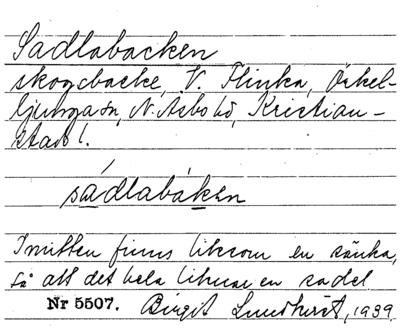 Sadlabacken
skogsbacke, V. Flinka, Örkel-
ljunga sn, N. Åsbo hd, Kristian-
stads l.
sádlabáken
I mitten finns liksom en sänka,
så att det hela liknar en sadel
Nr 5507. Birgit Lundkvist, 1939.